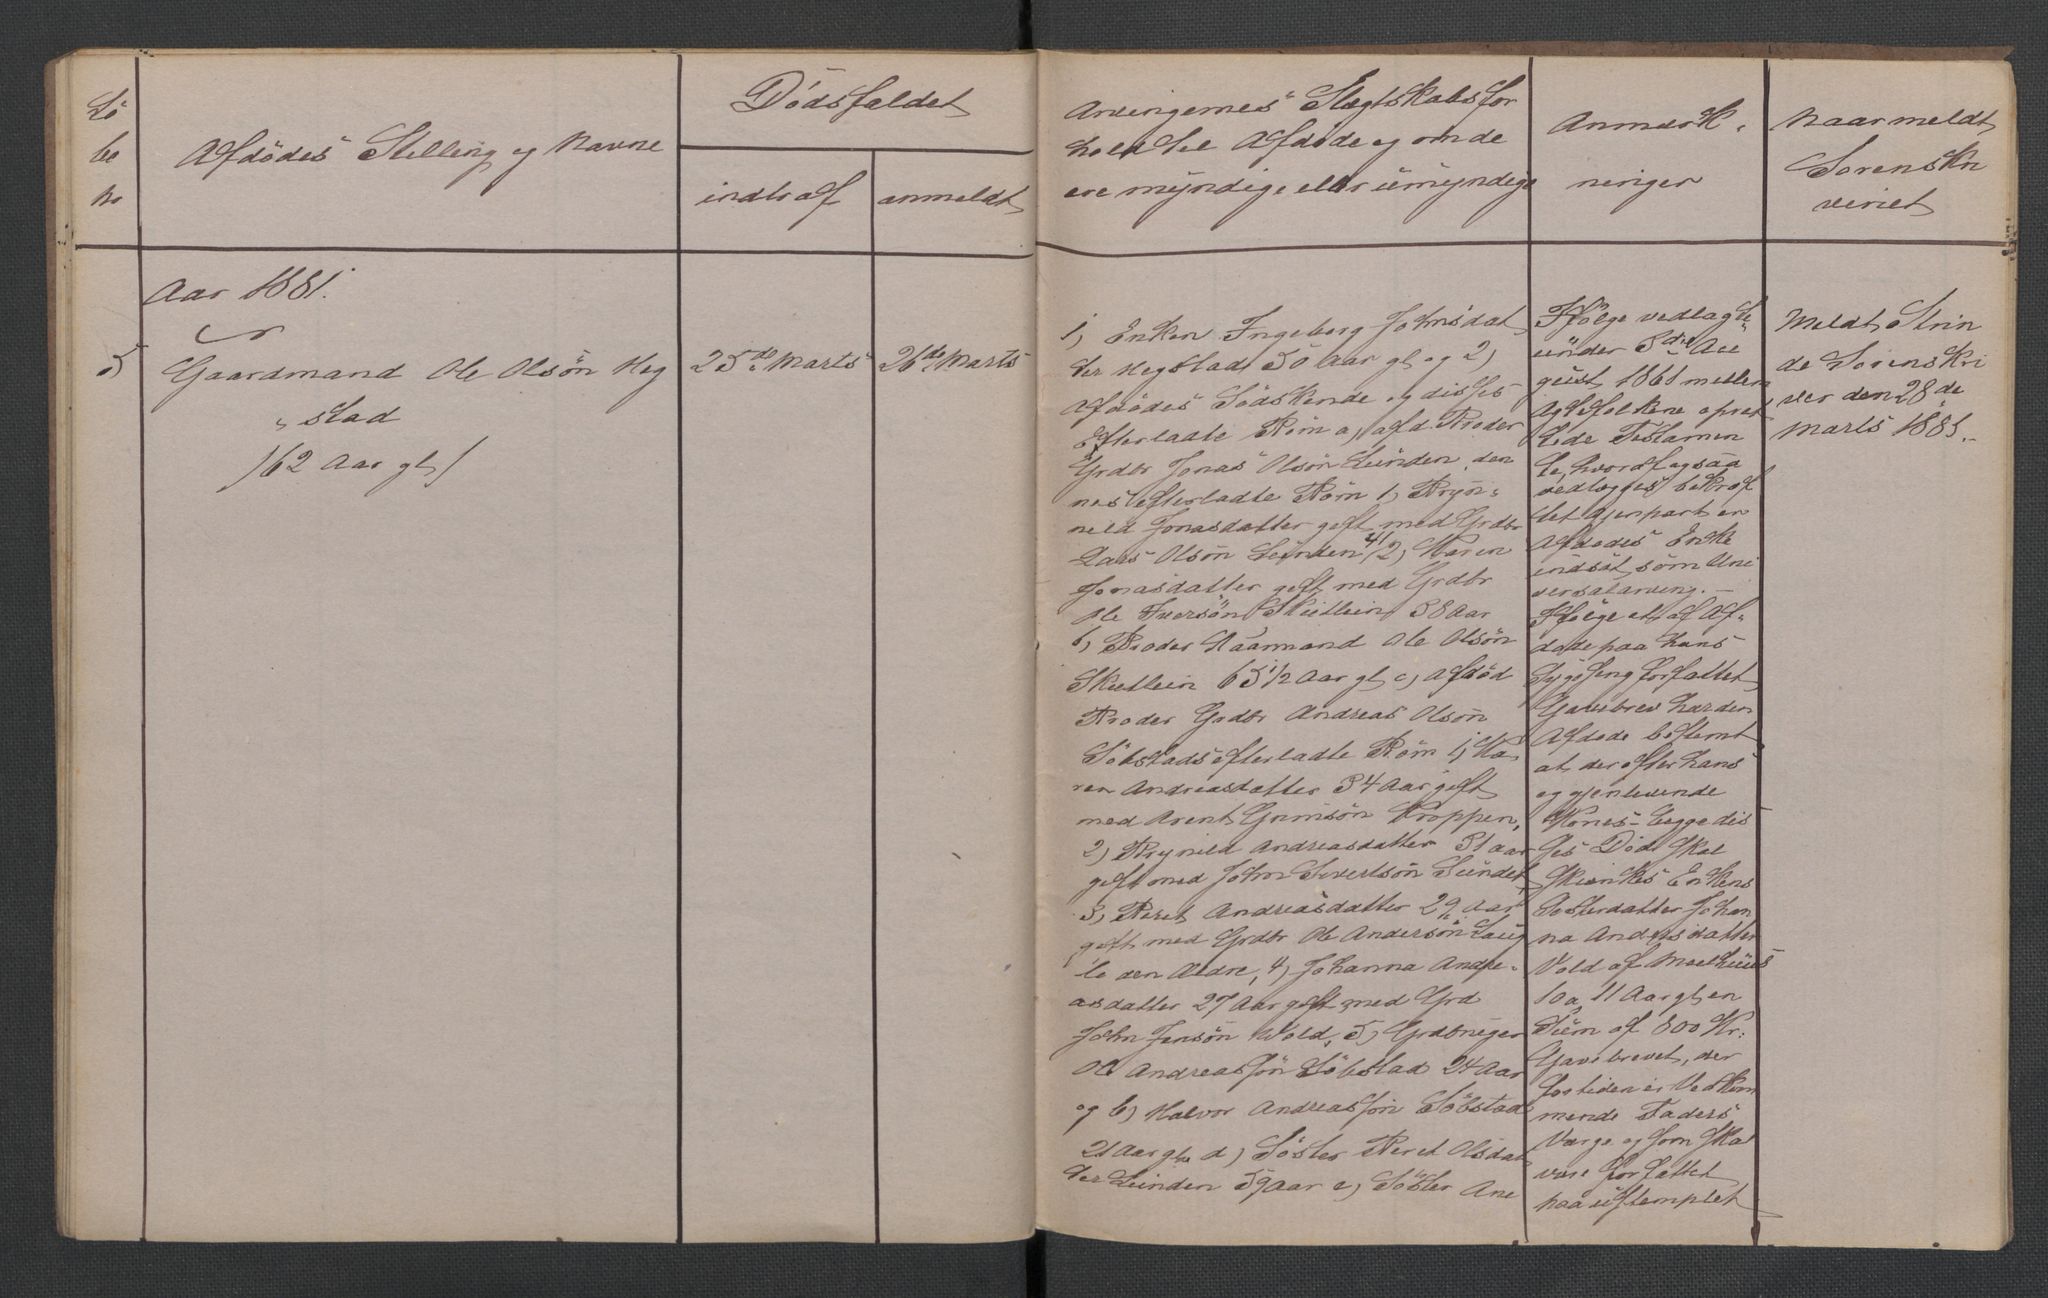 Lö
be
No
Afdödes Stelling og Navne
Dödsfaldet
indtraf
anmeldt
Arvingernes Slægtskabsfor
hold til Afdöde og om de
ere myndige eller umyndige
Anmærk-
ninger
Naarmeldt
Sorenskri
veriet
Aar 1881.
5
Gaardmand Ole Olsön Heg
stad
/62 Aar gl/
25de Marts
26de Marts
1, Enken Ingeborg Johnsdat
ter Hegstad 50 Aar gl og 2,
Afdödes Södskende og disses
Efterladte Börn a, afd. Broder
Grdbr Jonas Olsön Leinden, den
nes efterladte Börn 1, Bryn-
neld Jonasdatter gift med Grdbr
Lars Olsön Leinden 41 2, Maren
Jonasdatter gift med Grdbr
Ole Iversön Skietlein 38 Aar
b, Broder Kaarmand Ole Olsön
Skietlein 65 1/2 Aar gl c, Afdöd
Broder Grdbr Andreas Olsön
Söbstads efterladte Börn 1, Ka
ren Andreasdatter 34 Aar gift
med Arent Grimsön Kroppen,
2, Brynild Andreasdatter 31 aar
gift med John Sivertsön Sundet
3, Beret Andreasdatter 29 Aar
gift med Grdbr Ole Andersön Laug
le den Ældre, 4, Johanna Andre-
asdatter 27 Aar gift med Grd
John Jensön Wold, 5, Grdbruger
Ole Andreassön Söbstad 24 Aar
og 6, Halvor Andreassön Söbstad
21 Aar gle d, Söster Beret Olsdat
ter Leinden 59 Aar e, Söster Ane
Ifölge vedlagte
under 3die Au
gust 1861 mellem
Ægtefolkene opret
tede Testamen
te, hvoraf ogsaa
vedlægges bekræf
tet Gjenpart er
Afdödes Enke
indsat som Uni
versalarving.
Ifölge et af Af-
döde paa hans
Sygeseng forfattet
Gavebrev har den
Afdöde bestemt
at der efter hans
og gjenlevende
Kones - begge dis
ses Död skal
skienkes Enkens
Sösterdatter Johan
na Andersdatter
Vold af Meelhuus
10 a 11 Aar gl en
Sum af 800 Kr.
Gavebrevet, der
for tiden er Vedkom
mende Faders
Værge og som skal
være forfattet
paa ustemplet
Meldt Strin
de Sorenskri
ver den 28de
Marts 1881.